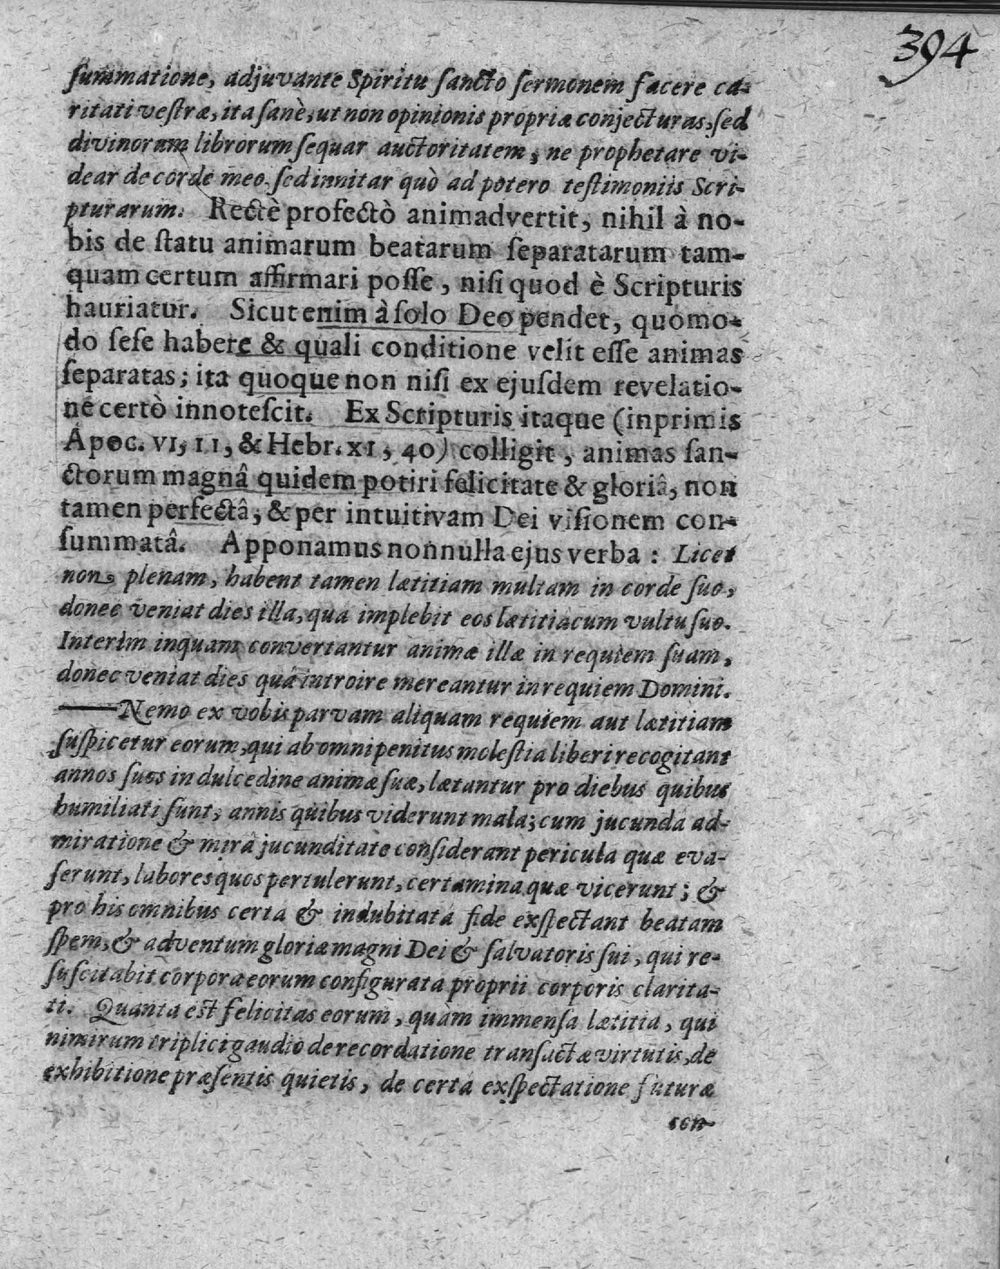 394
summatione, adjuvante Spiritu sancto sermonem facere ca-
ritati vestræ, ita sanè, ut non opinionis propriæ conjecturas, sed
divinorum librorum sequar auctoritatem, ne prophetare vi-
dear de corde meo. sed innitar quò ad potero testimoniis Scri-
pturarum. Rectè profectò animadvertit, nihil à no-
bis de statu animarum beatarum separatarum tam-
quam certum affirmari posse, nisi quod è Scripturis
hauriatur. Sicut enim à solo Deo pendet, quomo-
do sese habere & quali conditione velit esse animas
separatas; ita quoque non nisi ex ejusdem revelatio-
ne certò innotescit. Ex Scripturis itaque (inprimis
Apoc. VI, 11, & Hebr. XI, 40) colligit, animas san-
ctorum magnâ quidem potiri felicitate & gloriâ, non
tamen perfectâ, & per intuitivam Dei visionem con-
summatâ. Apponamus nonnulla ejus verba: Licet
non plenam, habent tamen lætitiam multam in corde suo,
donec veniat dies illa, qua implebit eos lætitia cum vultu suo.
Interim inquam convertantur animæ illæ in requiem suam,
donec veniat dies quâ introire mereantur in requiem Domini.
——Nemo ex vobis parvam aliquam requiem aut lætitiam
suspicetur eorum, qui ab omni penitus molestia liberi recogitant
annos suos in dulcedine animæ suæ, lætantur pro diebus quibus
humiliati sunt, annis quibus viderunt mala; cum jucunda ad-
miratione & mirâ jucunditate considerant pericula quæ eva-
serunt, labores quos pertulerunt, certamina quæ vicerunt; &
pro his omnibus certa & indubitata fide exspectant beatam
spem, & adventum gloriæ magni Dei & salvatoris sui, qui re-
suscitabit corpora eorum configurata proprii corporis clarita-
ti. Quanta est felicitas eorum, quàm immensa lætitia, qui
nimirum triplici gaudio de recordatione transactæ virtutis, de
exhibitione præsentis quietis, de certa exspectatione futuræ
con-